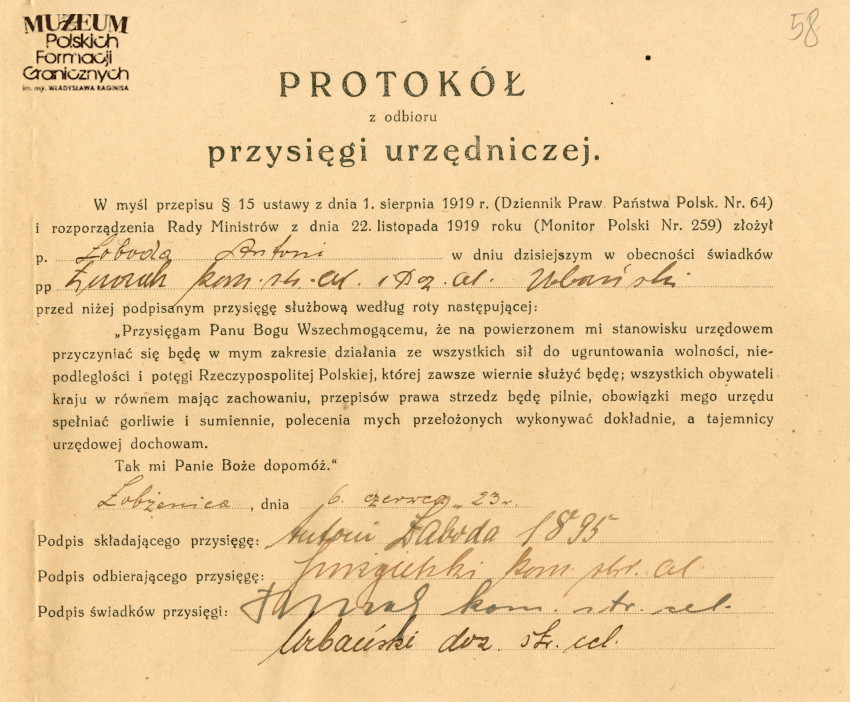 58
MUZEUM
Polskich
Formacji
Granicznych
im. mjr. WŁADYSŁAWA RAGINISA
PROTOKÓŁ
z odbioru
przysięgi urzędniczej.
W myśl przepisu § 15 ustawy z dnia 1. sierpnia 1919 r. (Dziennik Praw Państwa Polsk. Nr. 64)
i rozporządzenia Rady Ministrów z dnia 22. listopada 1919 roku (Monitor Polski Nr. 259) złożył
p. Łoboda Antoni w dniu dzisiejszym w obecności świadków
pp kom. str. cel. i Doz. cel. Urbański
przed niżej podpisanym przysięgę służbową według roty następującej:
„Przysięgam Panu Bogu Wszechmogącemu, że na powierzonem mi stanowisku urzędowem
przyczyniać się będę w mym zakresie działania ze wszystkich sił do ugruntowania wolności, nie-
podległości i potęgi Rzeczypospolitej Polskiej, której zawsze wiernie służyć będę; wszystkich obywateli
kraju w równem mając zachowaniu, przepisów prawa strzedz będę pilnie, obowiązki mego urzędu
spełniać gorliwie i sumiennie, polecenia mych przełożonych wykonywać dokładnie, a tajemnicy
urzędowej dochowam.
Tak mi Panie Boże dopomóż.“
Łobżenica, dnia 6. czerwca 23 r.
Podpis składającego przysięgę: Antoni Łaboda 1895
Podpis odbierającego przysięgę: kom. str. cel.
Podpis świadków przysięgi: kom. str. cel.
Urbański doz. str. cel.